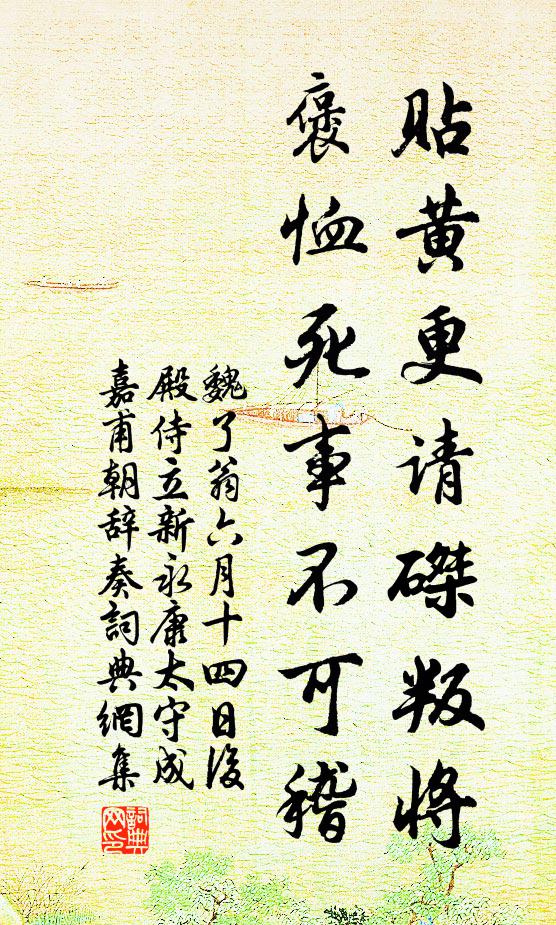 贴黄更请磔叛将
褒恤死事不可稽
魏了翁六月十四日後
殿侍立新永康太守成
嘉甫朝辞奏詞典網集
詞典
网印